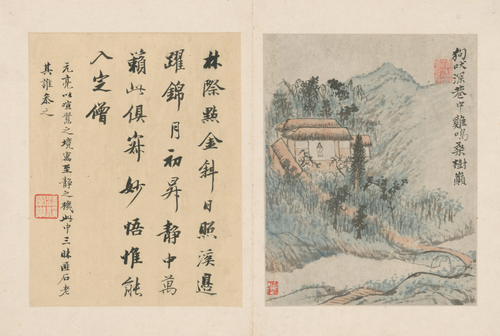 狗吠深巷中雞鳴桑樹巔
林際點金斜日照溪邊
躍錦月初昇靜中萬
籟此俱寂妙悟惟能
入定僧
元亮以喧之境寫至靜之機此中三昧匪石老
其誰參之